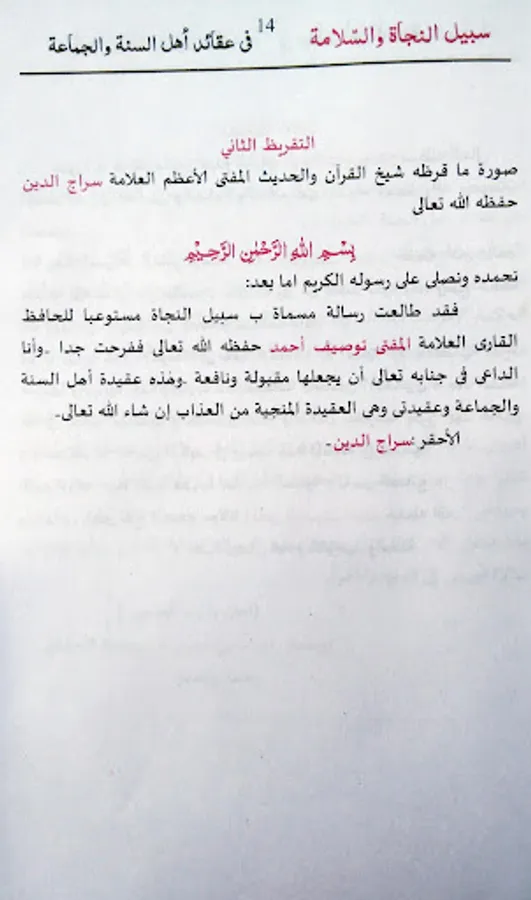 سبيل النجاة والسّلامة 14 فى عقائد أهل السنة والجماعة
التقريظ الثاني
صورة ما قرظه شيخ القرآن والحديث المفتى الأعظم العلامة سراج الدين
حفظه الله تعالى
بِسْمِ اللهِ الرَّحْمٰنِ الرَّحِيْمِ
نحمده ونصلى على رسوله الكريم اما بعد:
فقد طالعت رسالة مسماة ب سبيل النجاة مستوعبا للحافظ
القارى العلامة المفتى توصيف أحمد حفظه الله تعالى ففرحت جدا ۔وأنا
الداعى فى جنابه تعالى أن يجعلها مقبولة ونافعة ۔وهٰذه عقيدة أهل السنة
والجماعة وعقيدتى وهى العقيدة المنجية من العذاب إن شاء الله تعالى-
الأحقر:سراج الدين-